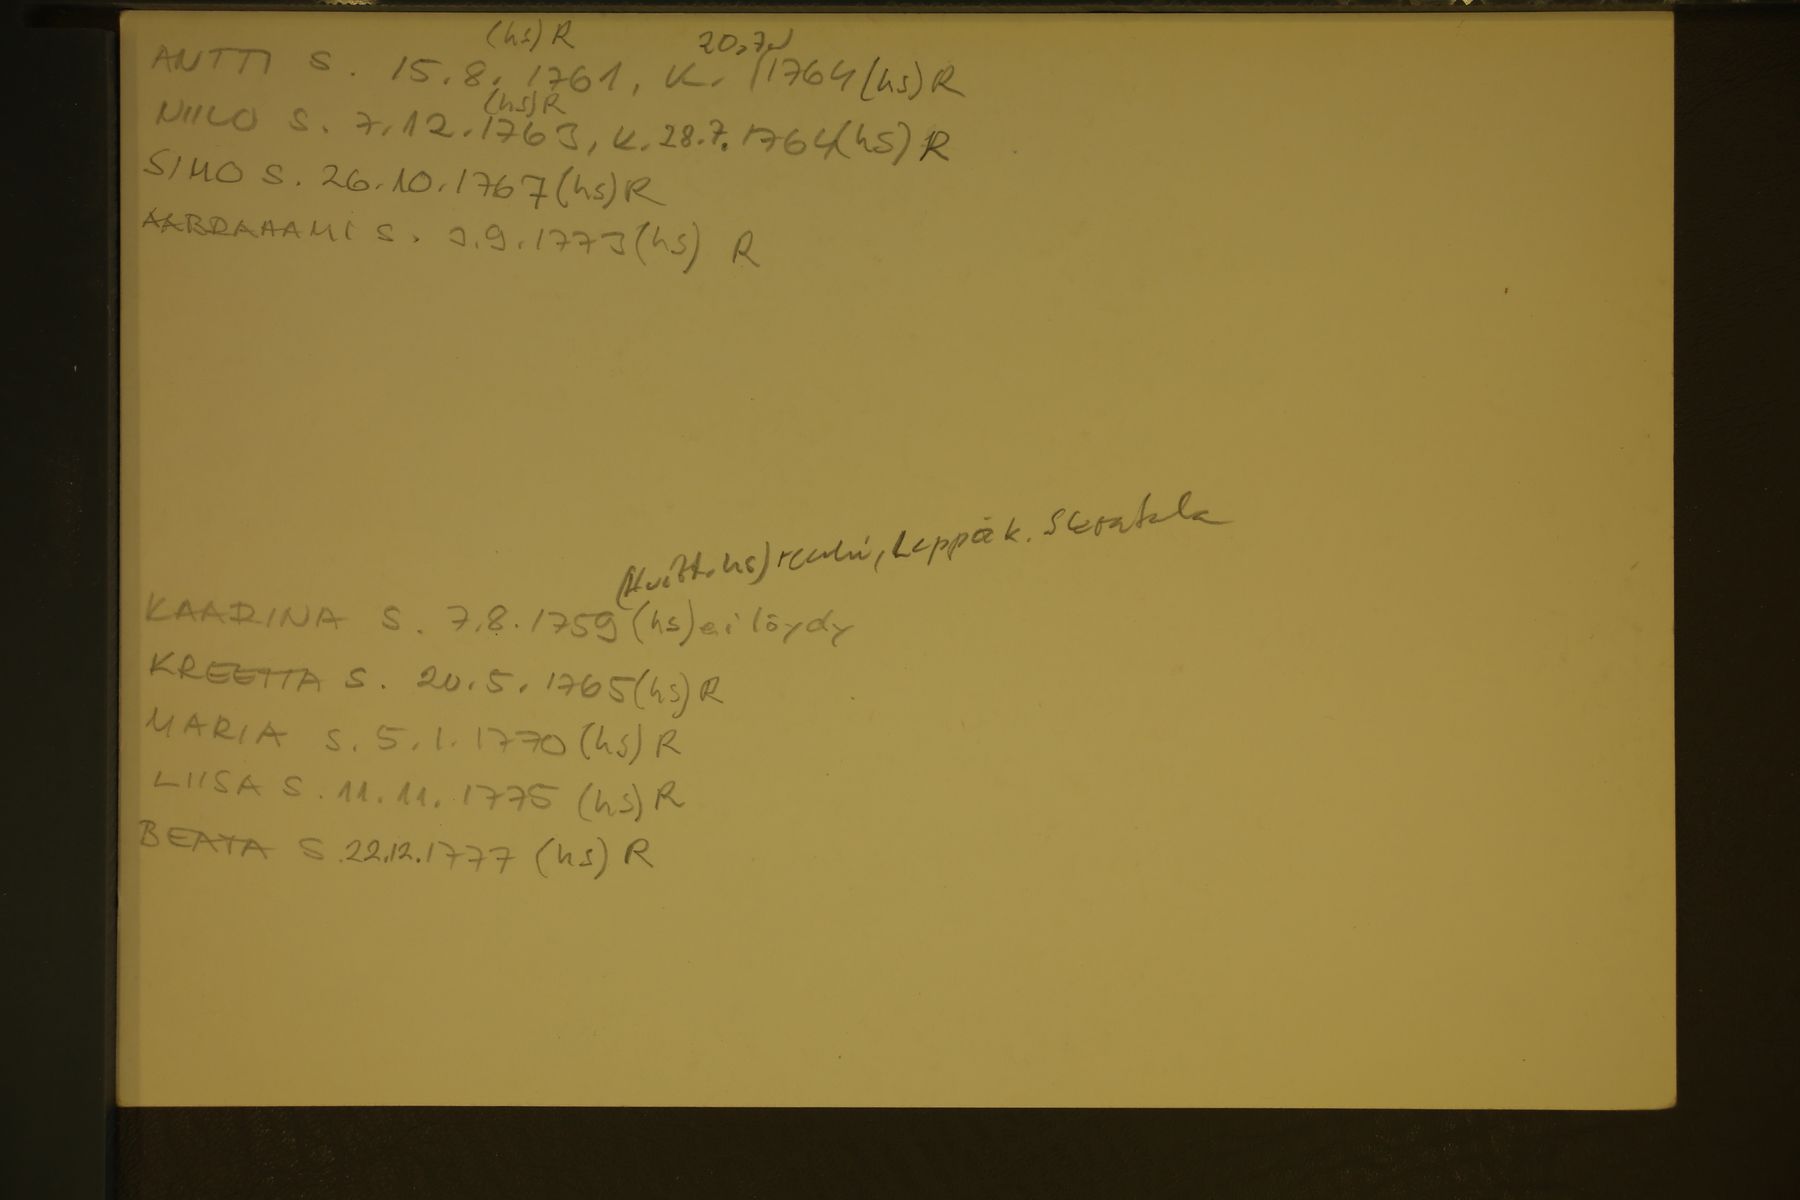 (hs) R 20.7.
ANTTI S. 15.8.1761, K. 1764 (hs) R
(hs) R
NIILO S. 7.12.1763, K. 28.7.1764 (hs) R
SIMO S. 26.10.1767 (hs) R
AABRAHAMI S. 3.9.1773 (hs) R
(Huitt. hs) Leppäk.
KAARINA S. 7.8.1759 (hs) ei löydy
KREETTA S. 20.5.1765 (hs) R
MARIA S. 5.1.1770 (hs) R
LIISA S. 11.11.1775 (hs) R
BEATA S. 22.12.1777 (hs) R